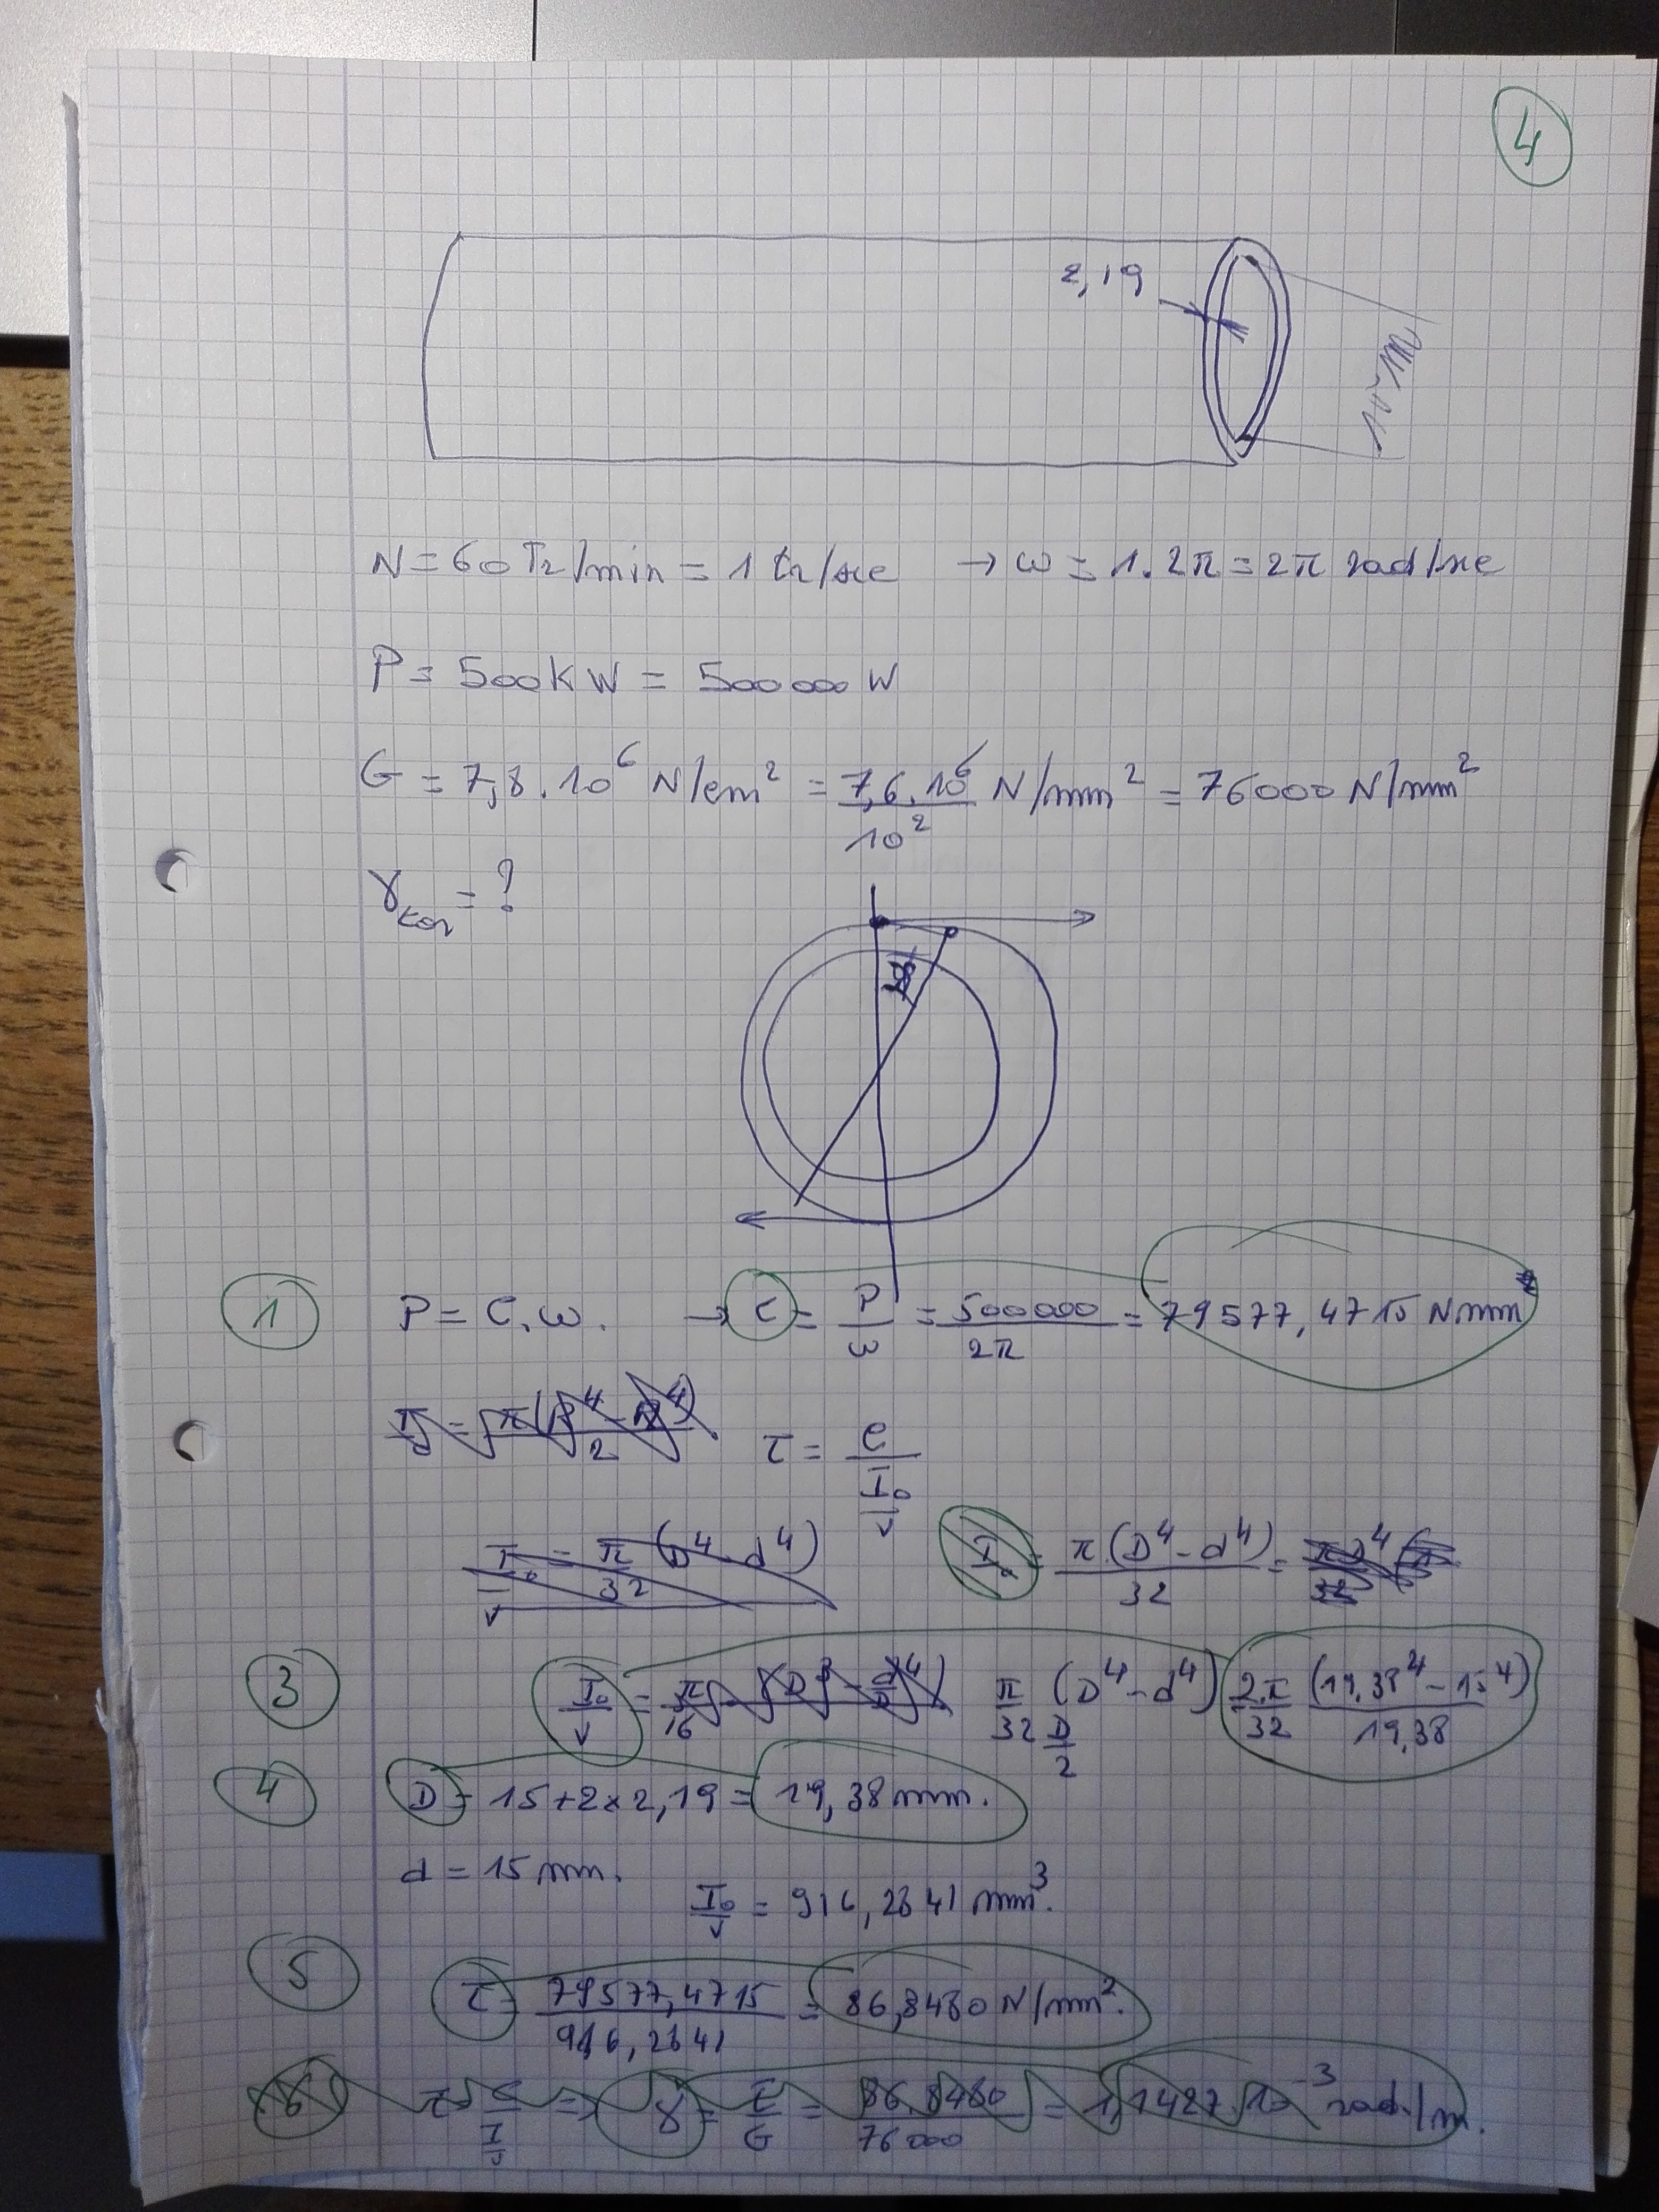 4
2,19
N = 60 Tr/min = 1 tr/sec → ω = 1.2π = 2π rad/sec
P = 500 KW = 500000 W
G = 7,8.10⁶ N/cm² = 7,6.10⁶/10² N/mm² = 76000 N/mm²
= ?
1 P = C.ω. → C = P/ω = 500000/2π = 79577,4715 N.mm
τ = C/(I₀/v)
I₀/v = π/32 (D⁴ - d⁴)
I₀ = π.(D⁴ - d⁴)/32 =
3 I₀/v = π/32 (D⁴ - d⁴)/(D/2) 2.π/32 (19,38⁴ - 15⁴)/19,38
4 D = 15 + 2 × 2,19 = 19,38 mm.
d = 15 mm.
I₀/v = 916,2841 mm³.
5 τ = 79577,4715/916,2841 = 86,8480 N/mm².
6 γ = τ/G = 86,8480/76000 = 1,1427.10⁻³ rad./m.